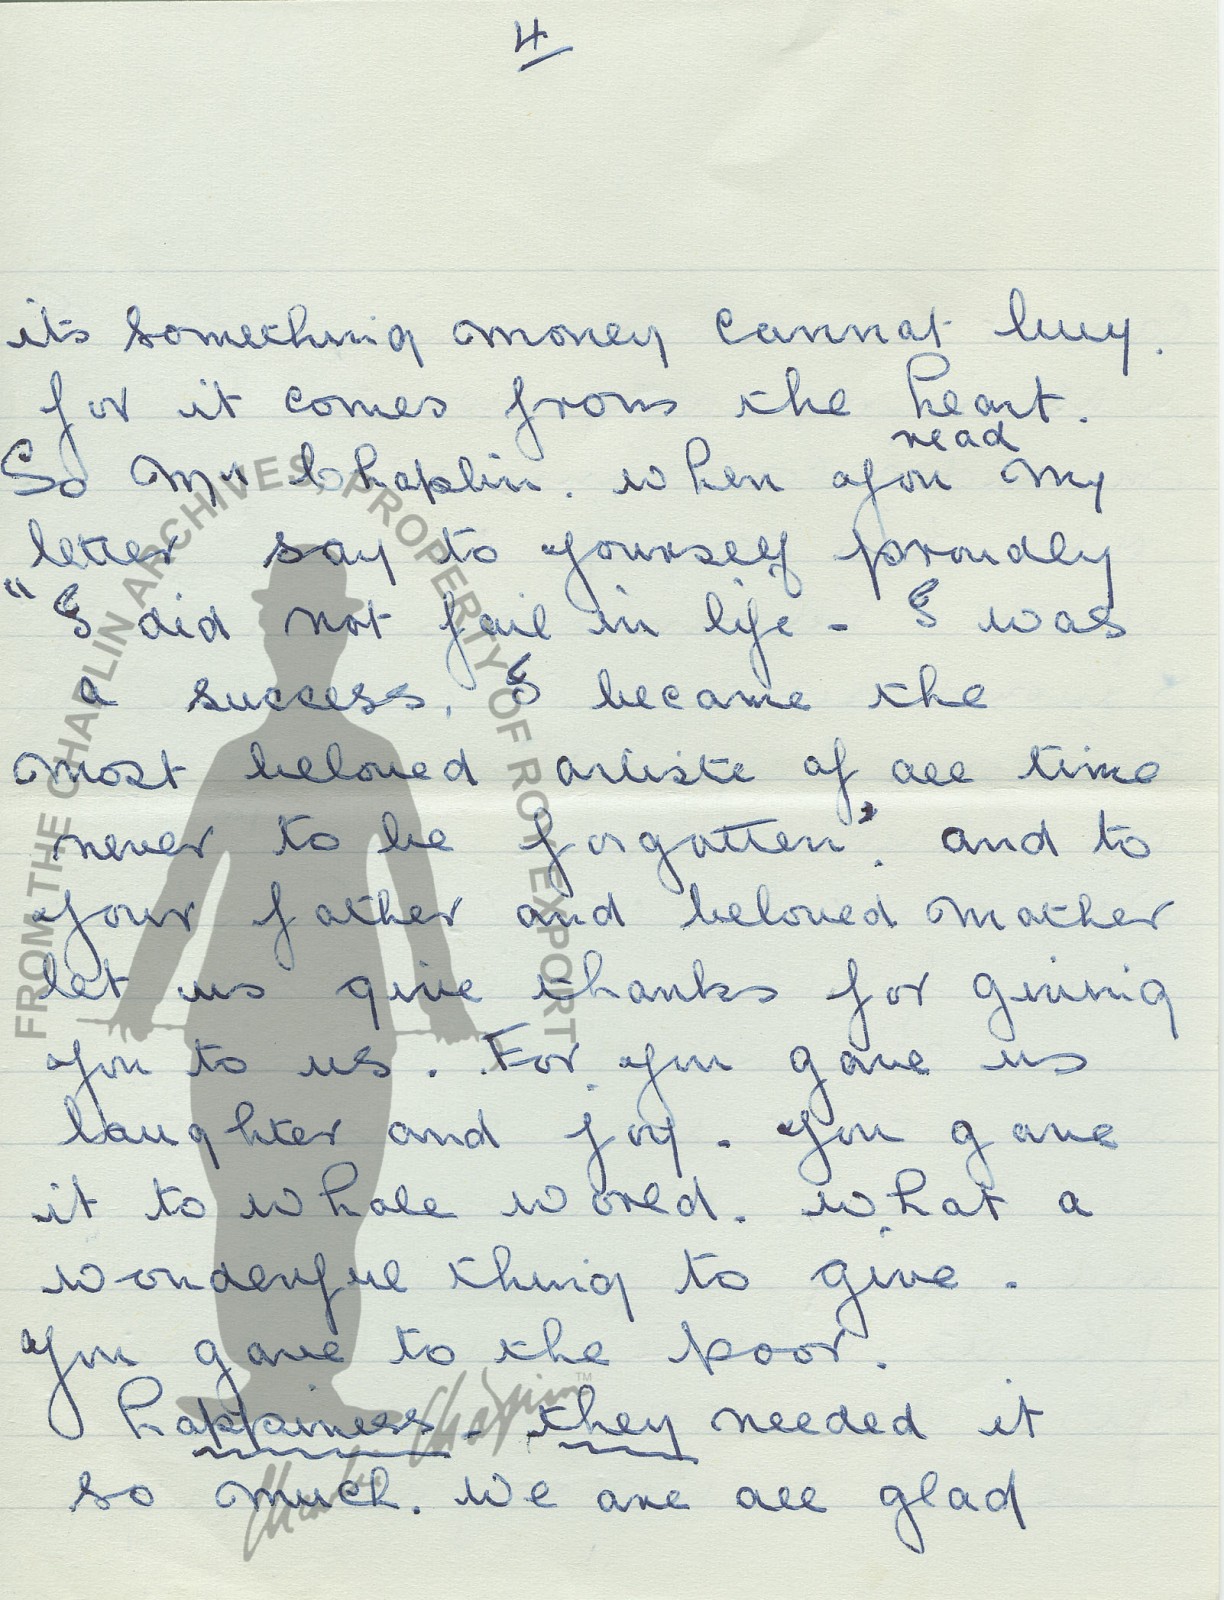 4
its something money cannot buy.
for it comes from the heart.
read
So Mr Chaplin. when you my
letter say to yourself proudly
"I did not fail in life - I was
a success. I became the
most beloved artiste of all time
never to be forgotten". and to
your father and beloved mother
let us give thanks for giving
you to us. For you gave us
laughter and joy. You gave
it to whole world. what a
wonderful thing to give.
You gave to the poor.
happiness - they needed it
so much. We are all glad
FROM THE CHAPLIN ARCHIVES, PROPERTY OF ROY EXPORT
Charles Chaplin TM